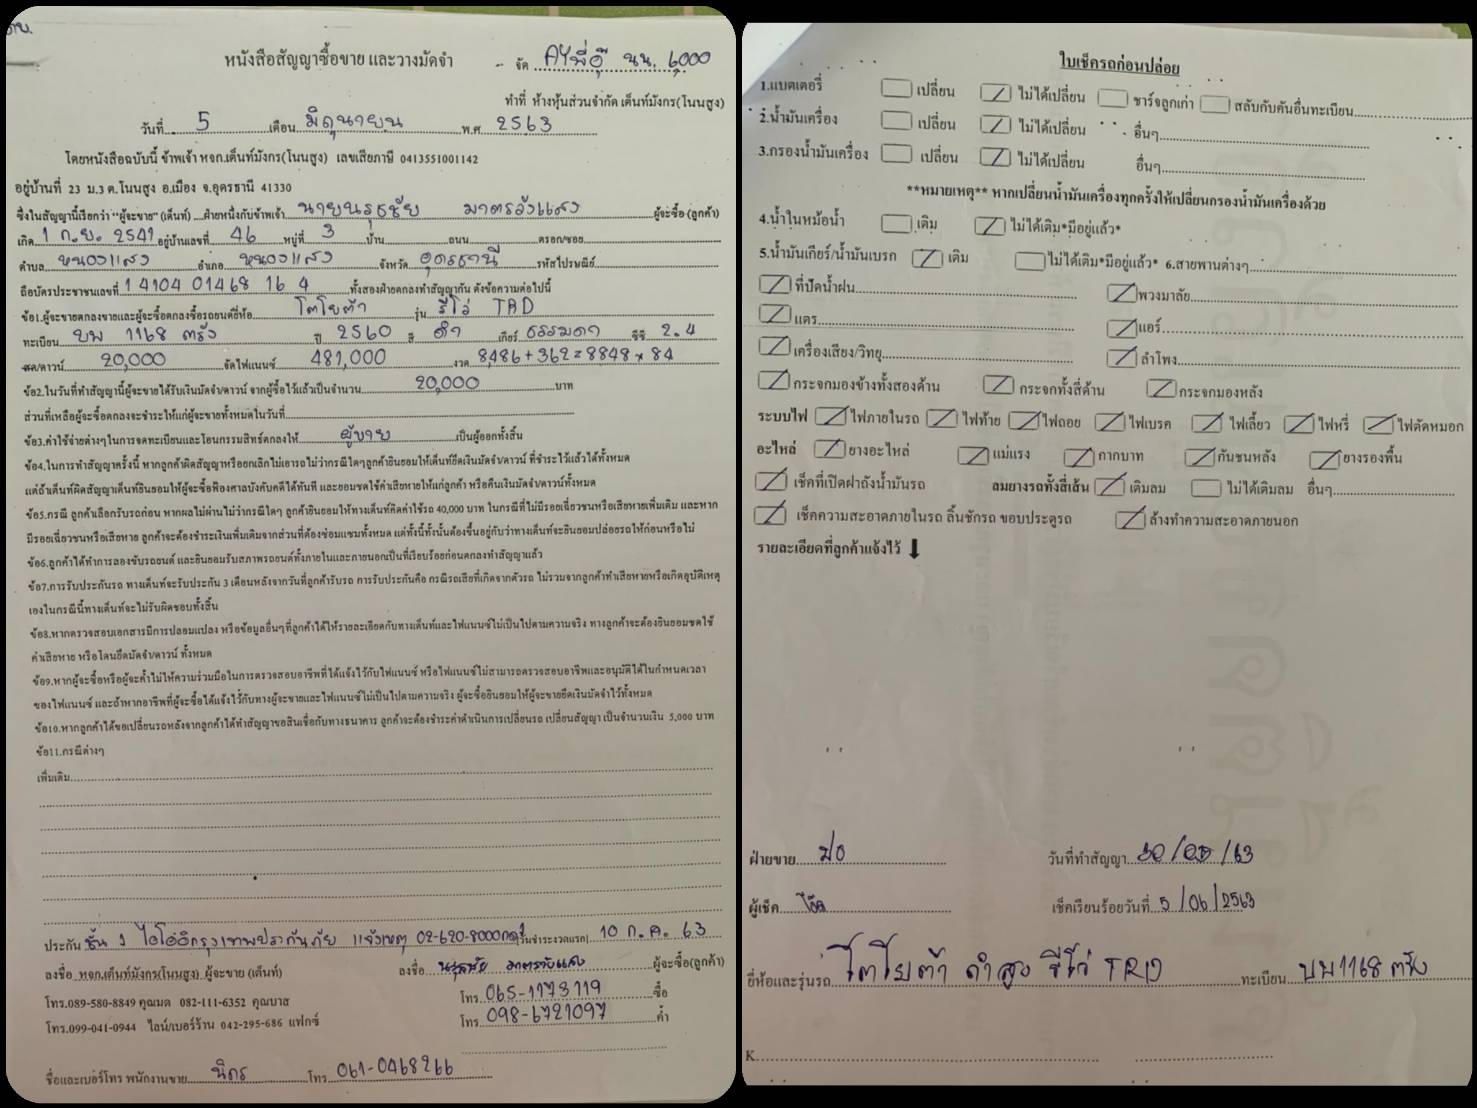 หนังสือสัญญาซื้อขาย และวางมัดจำ
- จัด AYพี่อู๊ นน. 6,000
ทำที่ ห้างหุ้นส่วนจำกัด เต็นท์มังกร(โนนสูง)
วันที่ 5 เดือน มิถุนายน พ.ศ 2563
โดยหนังสือฉบับนี้ ข้าพเจ้า หจก.เต็นท์มังกร(โนนสูง) เลขเสียภาษี 0413551001142
อยู่บ้านที่ 23 ม.3 ต.โนนสูง อ.เมือง จ.อุดรธานี 41330
ซึ่งในสัญญานี้เรียกว่า "ผู้จะขาย" (เต็นท์) ฝ่ายหนึ่งกับข้าพเจ้า นายนรุธชัย มาตรวังแสง ผู้จะซื้อ (ลูกค้า)
เกิด 1 ก.ย. 2541 อยู่บ้านเลขที่ 46 หมู่ที่ 3 บ้าน ถนน ตรอก/ซอย
ตำบล หนองแสง อำเภอ หนองแสง จังหวัด อุดรธานี รหัสไปรษณีย์
ถือบัตรประชาชนเลขที่ 1 4104 01468 16 4 ทั้งสองฝ่ายตกลงทำสัญญากัน ดังข้อความต่อไปนี้
ข้อ1.ผู้จะขายตกลงขายและผู้จะซื้อตกลงซื้อรถยนต์ยี่ห้อ โตโยต้า รุ่น รีโว่ TRD
ทะเบียน บพ 1168 ตรัง ปี 2560 สี ดำ เกียร์ ธรรมดา ซีซี 2.4
สด/ดาวน์ 20,000 จัดไฟแนนซ์ 481,000 งวด 8486+362=8848 x 84
ข้อ2.ในวันที่ทำสัญญานี้ผู้จะขายได้รับเงินมัดจำ/ดาวน์ จากผู้ซื้อไว้แล้วเป็นจำนวน 20,000 บาท
ส่วนที่เหลือผู้จะซื้อตกลงจะชำระให้แก่ผู้จะขายทั้งหมดในวันที่
ข้อ3.ค่าใช้จ่ายต่างๆในการจดทะเบียนและโอนกรรมสิทธิ์ตกลงให้ ผู้ขาย เป็นผู้ออกทั้งสิ้น
ข้อ4.ในการทำสัญญาครั้งนี้ หากลูกค้าผิดสัญญาหรือยกเลิกไม่เอารถ ไม่ว่ากรณีใดๆลูกค้ายินยอมให้เต็นท์ยึดเงินมัดจำ/ดาวน์ ที่ชำระไว้แล้วได้ทั้งหมด
แต่ถ้าเต็นท์ผิดสัญญาเต็นท์ยินยอมให้ผู้จะซื้อฟ้องศาลบังคับคดีได้ทันที และยอมชดใช้ค่าเสียหายให้แก่ลูกค้า หรือคืนเงินมัดจำ/ดาวน์ทั้งหมด
ข้อ5.กรณี ลูกค้าเลือกรับรถก่อน หากผลไม่ผ่านไม่ว่ากรณีใดๆ ลูกค้ายินยอมให้ทางเต็นท์คิดค่าใช้รถ 40,000 บาท ในกรณีที่ไม่มีรอยเฉี่ยวชนหรือเสียหายเพิ่มเติม และหาก
มีรอยเฉี่ยวชนหรือเสียหาย ลูกค้าจะต้องชำระเงินเพิ่มเติมจากส่วนที่ต้องซ่อมแซมทั้งหมด แต่ทั้งนี้ทั้งนั้นต้องขึ้นอยู่กับว่าทางเต็นท์จะยินยอมปล่อยรถให้ก่อนหรือไม่
ข้อ6.ลูกค้าได้ทำการลองขับรถยนต์ และยินยอมรับสภาพรถยนต์ทั้งภายในและภายนอกเป็นที่เรียบร้อยก่อนตกลงทำสัญญาแล้ว
ข้อ7.การรับประกันรถ ทางเต็นท์จะรับประกัน 3 เดือนหลังจากวันที่ลูกค้ารับรถ การรับประกันคือ กรณีรถเสียที่เกิดจากตัวรถ ไม่รวมจากลูกค้าทำเสียหายหรือเกิดอุบัติเหตุ
เองในกรณีนี้ทางเต็นท์จะไม่รับผิดชอบทั้งสิ้น
ข้อ8.หากตรวจสอบเอกสารมีการปลอมแปลง หรือข้อมูลอื่นๆที่ลูกค้าได้ให้รายละเอียดกับทางเต็นท์และไฟแนนซ์ไม่เป็นไปตามความจริง ทางลูกค้าจะต้องยินยอมชดใช้
ค่าเสียหาย หรือโดนยึดมัดจำ/ดาวน์ ทั้งหมด
ข้อ9.หากผู้จะซื้อหรือผู้จะค้ำไม่ให้ความร่วมมือในการตรวจสอบอาชีพที่ได้แจ้งไว้กับไฟแนนซ์ หรือไฟแนนซ์ไม่สามารถตรวจสอบอาชีพและอนุมัติได้ในกำหนดเวลา
ของไฟแนนซ์ และถ้าหากอาชีพที่ผู้จะซื้อได้แจ้งไว้กับทางผู้จะขายและไฟแนนซ์ไม่เป็นไปตามความจริง ผู้จะซื้อยินยอมให้ผู้จะขายยึดเงินมัดจำไว้ทั้งหมด
ข้อ10.หากลูกค้าได้ขอเปลี่ยนรถหลังจากลูกค้าได้ทำสัญญาขอสินเชื่อกับทางธนาคาร ลูกค้าจะต้องชำระค่าดำเนินการเปลี่ยนรถ เปลี่ยนสัญญา เป็นจำนวนเงิน 5,000 บาท
ข้อ11.กรณีต่างๆ
เพิ่มเติม
ประกัน ชั้น 1 ไอโออิกรุงเทพประกันภัย แจ้งเหตุ 02-620-8000กด1 วันชำระงวดแรก 10 ก.ค. 63
ลงชื่อ หจก.เต็นท์มังกร(โนนสูง) ผู้จะขาย (เต็นท์) ลงชื่อ นรุธชัย มาตรวังแสง ผู้จะซื้อ(ลูกค้า)
โทร.089-580-8849 คุณมด 082-111-6352 คุณบาส โทร. 065-1173119 ซื้อ
โทร.099-041-0944 ไลน์/เบอร์ร้าน 042-295-686 แฟกซ์ โทร. 098-6721097 ค้ำ
ชื่อและเบอร์โทร พนักงานขาย นิกร โทร 061-0468266
ใบเช็ครถก่อนปล่อย
1.แบตเตอรี่ เปลี่ยน ไม่ได้เปลี่ยน ชาร์จลูกเก่า สลับกับคันอื่นทะเบียน
2.น้ำมันเครื่อง เปลี่ยน ไม่ได้เปลี่ยน อื่นๆ
3.กรองน้ำมันเครื่อง เปลี่ยน ไม่ได้เปลี่ยน อื่นๆ
**หมายเหตุ** หากเปลี่ยนน้ำมันเครื่องทุกครั้งให้เปลี่ยนกรองน้ำมันเครื่องด้วย
4.น้ำในหม้อน้ำ เติม ไม่ได้เติม*มีอยู่แล้ว*
5.น้ำมันเกียร์/น้ำมันเบรก เติม ไม่ได้เติม*มีอยู่แล้ว* 6.สายพานต่างๆ
ที่ปัดน้ำฝน พวงมาลัย
แตร แอร์
เครื่องเสียง/วิทยุ ลำโพง
กระจกมองข้างทั้งสองด้าน กระจกทั้งสี่ด้าน กระจกมองหลัง
ระบบไฟ ไฟภายในรถ ไฟท้าย ไฟถอย ไฟเบรค ไฟเลี้ยว ไฟหรี่ ไฟตัดหมอก
อะไหล่ ยางอะไหล่ แม่แรง กากบาท กันชนหลัง ยางรองพื้น
เช็คที่เปิดฝาถังน้ำมันรถ ลมยางรถทั้งสี่เส้น เติมลม ไม่ได้เติมลม อื่นๆ
เช็คความสะอาดภายในรถ ลิ้นชักรถ ขอบประตูรถ ล้างทำความสะอาดภายนอก
รายละเอียดที่ลูกค้าแจ้งไว้
ฝ่ายขาย วันที่ทำสัญญา /63
ผู้เช็ค เช็คเรียบร้อยวันที่ 5/06/2563
ยี่ห้อและรุ่นรถ โตโยต้า ดำสูง รีโว่ TRD ทะเบียน บพ1168 ตรัง
K